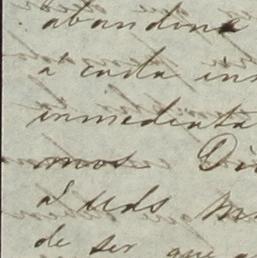 abandone
á cada ins
inmediata
mos Di
á Uds m
de ser que